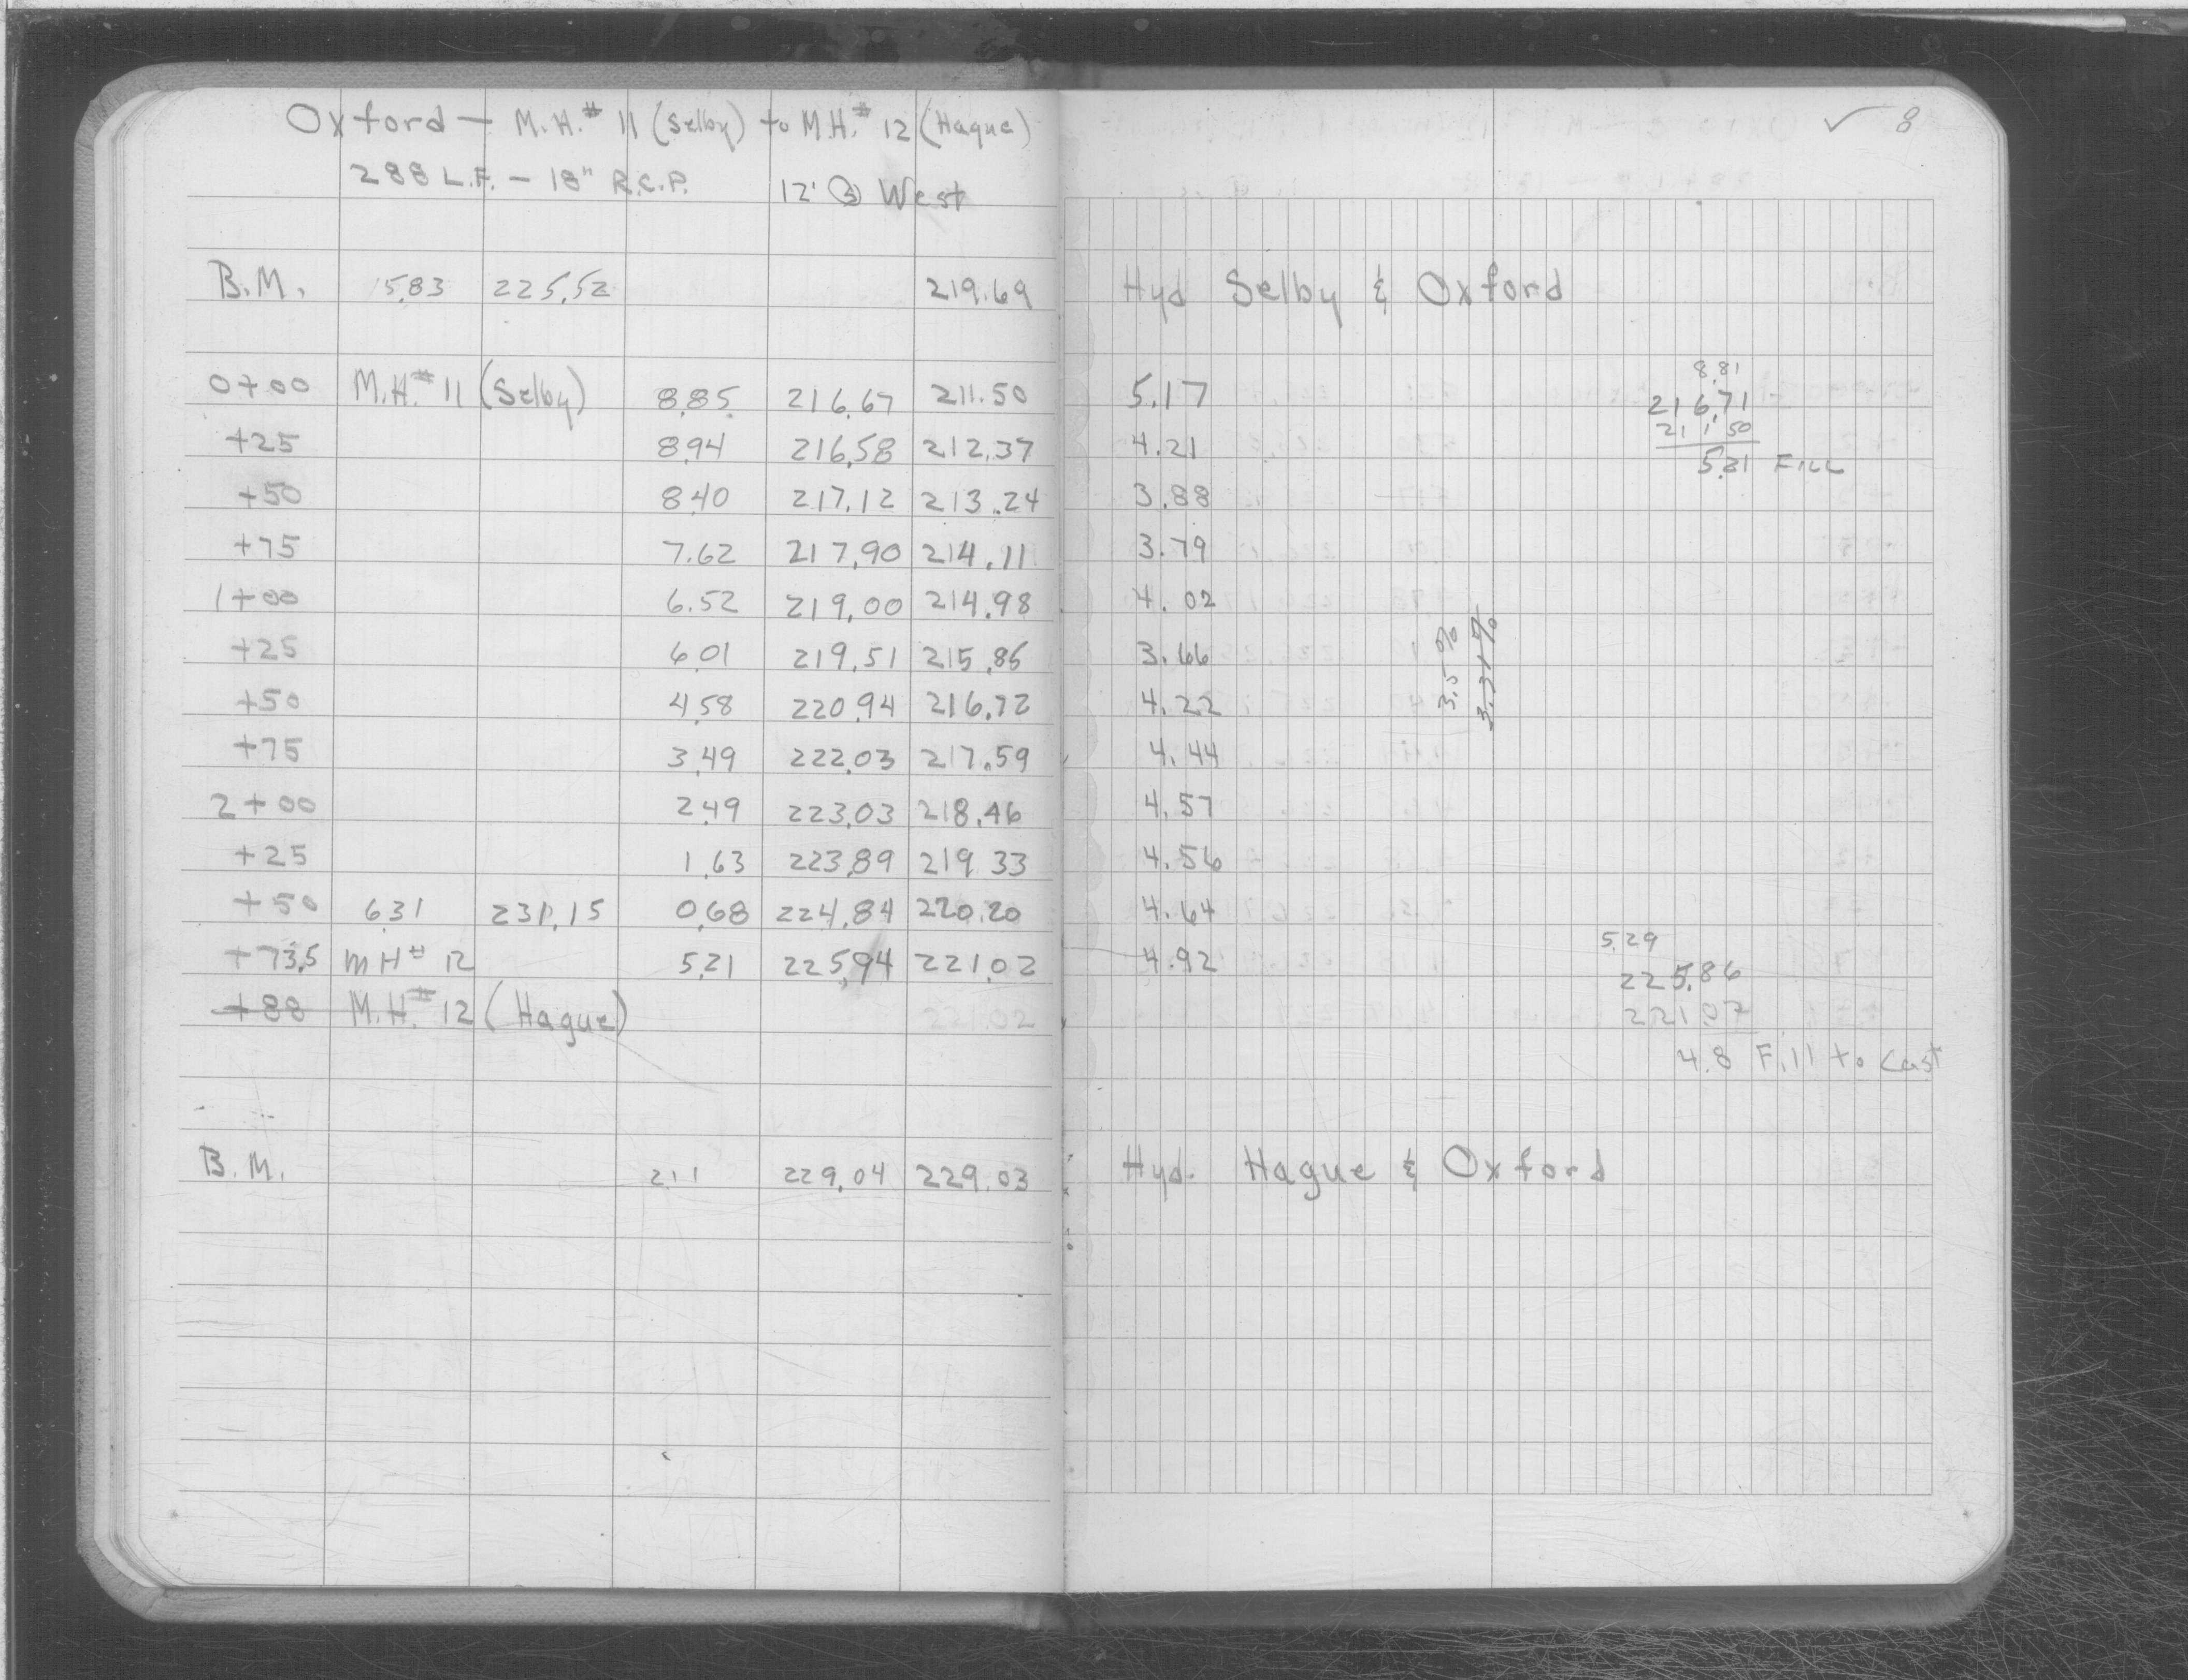 Oxford — M.H.# 11 (Selby) to M.H.# 12 (Hague)
288 L.F. — 18" R.C.P. 12' West
✓ 8
B.M. 5.83 225.52 219.69 Hyd Selby & Oxford
8.81
0+00 M.H.# 11 (Selby) 8.85 216.67 211.50 5.17 216.71
211.50
+25 8.94 216.58 212.37 4.21 5.21 FILL
+50 8.40 217.12 213.24 3.88
+75 7.62 217.90 214.11 3.79
1+00 6.52 219.00 214.98 4.02
+25 6.01 219.51 215.85 3.66 3.5% 3.31%
+50 4.58 220.94 216.72 4.22
+75 3.49 222.03 217.59 4.44
2+00 2.49 223.03 218.46 4.57
+25 1.63 223.89 219.33 4.56
+50 6.31 231.15 0.68 224.84 220.20 4.64
5.29
+73.5 MH# 12 5.21 225.94 221.02 4.92 225.86
+88 M.H.# 12 (Hague) 221.02 221.07
4.8 Fill to Cast
B.M. 2.11 229.04 229.03 Hyd. Hague & Oxford